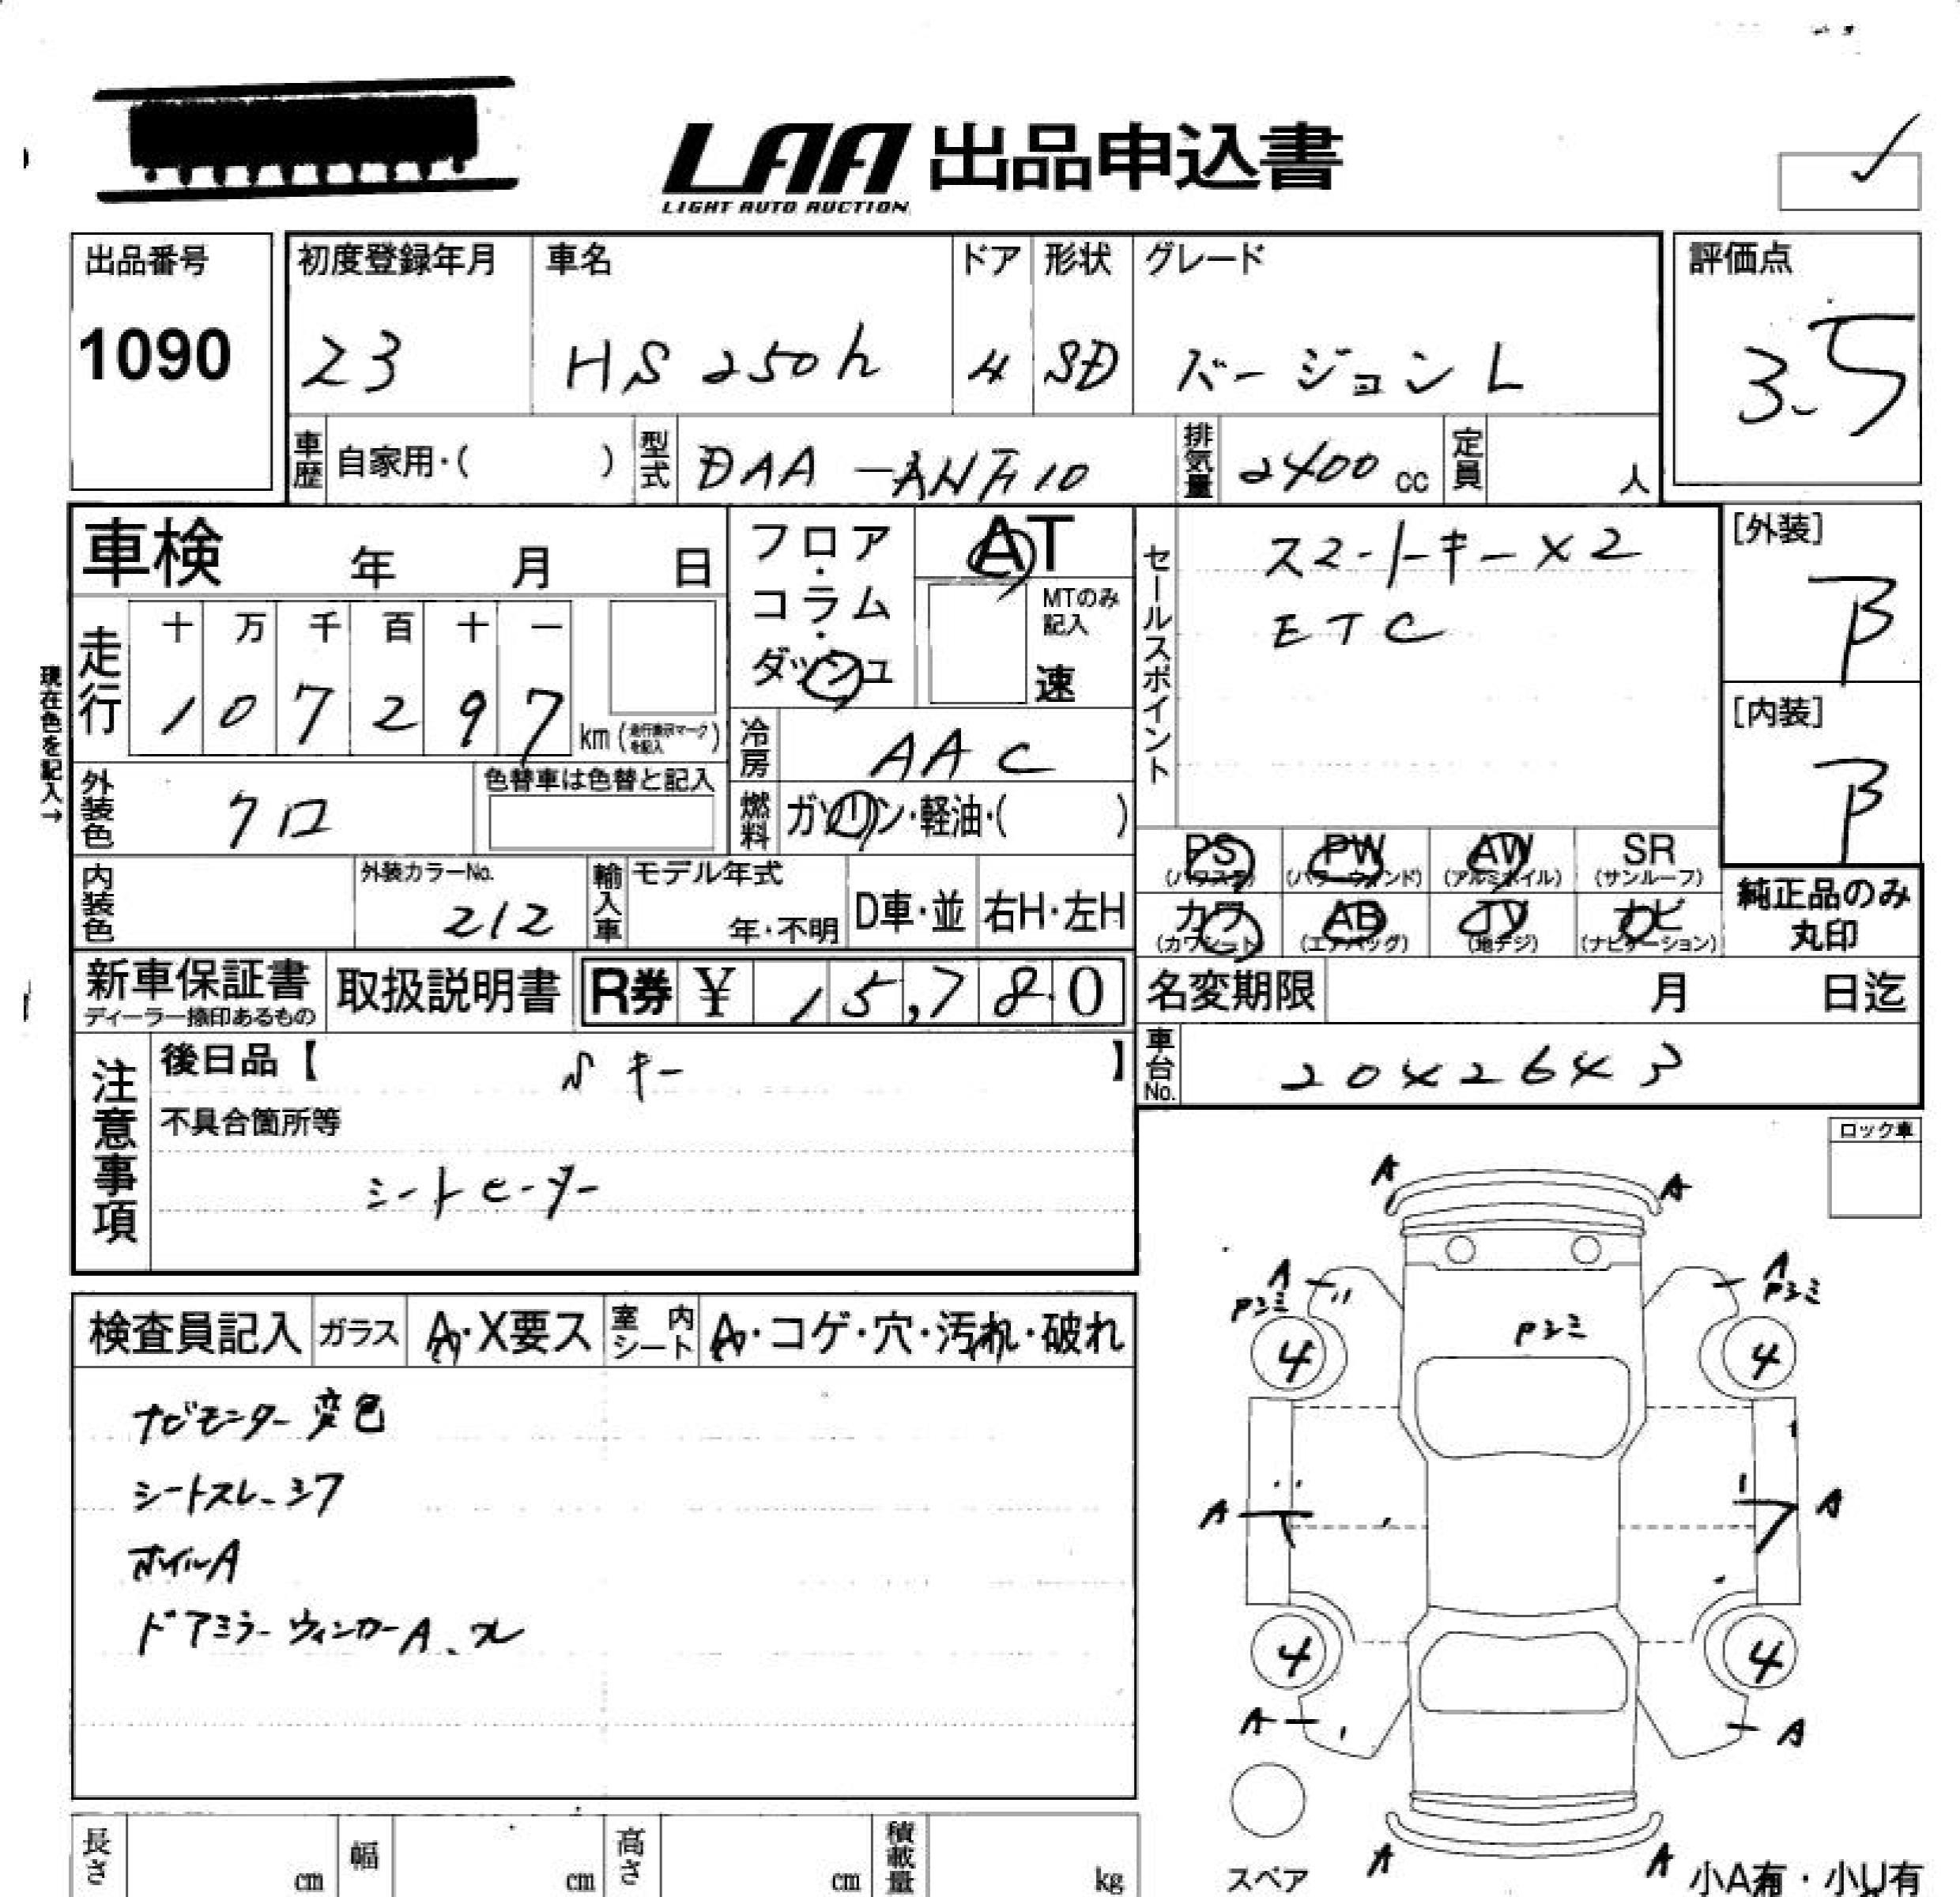 LAA 出品申込書
LIGHT AUTO AUCTION
出品番号
1090
初度登録年月 車名 ドア 形状 グレード
23 HS250h 4 SD バージョンL
評価点
3.5
車歴 自家用・( ) 型式 DAA-ANF10 排気量 2400 cc 定員 人
車検 年 月 日
フロア・コラム・ダッシュ
AT
MTのみ記入
速
現在色を記入→
走行 十 万 千 百 十 一
1 0 7 2 9 7 km(走行表示マークを記入)
冷房 AAC
外装色 クロ
色替車は色替と記入
燃料 ガソリン・軽油・( )
内装色
外装カラーNo.
212
輸入車 モデル年式
年・不明 D車・並 右H・左H
セールスポイント
スマートキー×2
ETC
[外装]
B
[内装]
B
PS PW AW SR
(パワステ) (パワーウィンド) (アルミホイル) (サンルーフ)
カワ AB TV ナビ
(カワシート) (エアバッグ) (地デジ) (ナビゲーション)
純正品のみ
丸印
新車保証書
ディーラー捺印あるもの
取扱説明書 R券 ¥ 15,780
名変期限 月 日迄
車台No. 2042643
注意事項
後日品【 キー 】
不具合箇所等
シートヒーター
ロック車
検査員記入 ガラス A・X要ス 室内シート A・コゲ・穴・汚れ・破れ
ナビモニター変色
シートスレ、シワ
ホイルA
ドアミラーウィンカーA、
A A
A A
Pシミ Pシミ
Pシミ
4 4
A A
4 4
A A
A A
スペア
小A有・小U有
長さ cm 幅 cm 高さ cm 積載量 kg